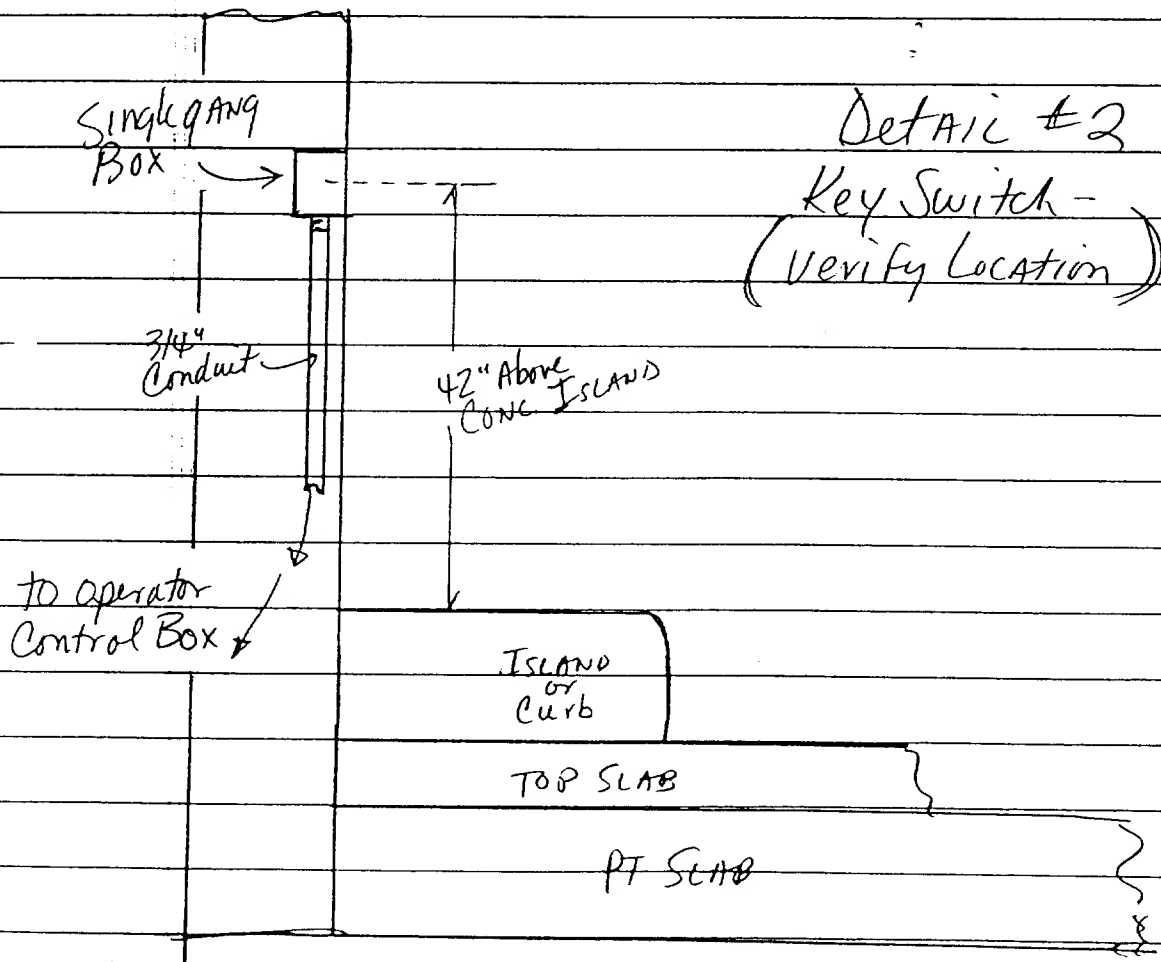 Single gang
Box
Detail #2
Key Switch -
(Verify Location)
3/4"
Conduit
42" Above
Conc. Island
to operator
Control Box
Island
or
Curb
TOP SLAB
PT SLAB